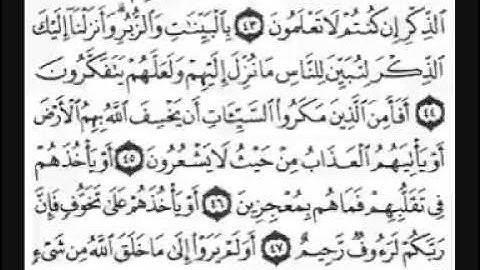 ٱلذِّكْرِ إِن كُنتُمْ لَا تَعْلَمُونَ ٤٣ بِٱلْبَيِّنَٰتِ وَٱلزُّبُرِ ۗ وَأَنزَلْنَآ إِلَيْكَ
ٱلذِّكْرَ لِتُبَيِّنَ لِلنَّاسِ مَا نُزِّلَ إِلَيْهِمْ وَلَعَلَّهُمْ يَتَفَكَّرُونَ
٤٤ أَفَأَمِنَ ٱلَّذِينَ مَكَرُوا۟ ٱلسَّيِّـَٔاتِ أَن يَخْسِفَ ٱللَّهُ بِهِمُ ٱلْأَرْضَ
أَوْ يَأْتِيَهُمُ ٱلْعَذَابُ مِنْ حَيْثُ لَا يَشْعُرُونَ ٤٥ أَوْ يَأْخُذَهُمْ
فِى تَقَلُّبِهِمْ فَمَا هُم بِمُعْجِزِينَ ٤٦ أَوْ يَأْخُذَهُمْ عَلَىٰ تَخَوُّفٍ فَإِنَّ
رَبَّكُمْ لَرَءُوفٌ رَّحِيمٌ ٤٧ أَوَلَمْ يَرَوْا۟ إِلَىٰ مَا خَلَقَ ٱللَّهُ مِن شَىْءٍ